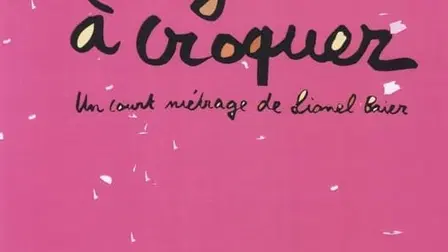 à croquer
Un court métrage de Lionel Baier